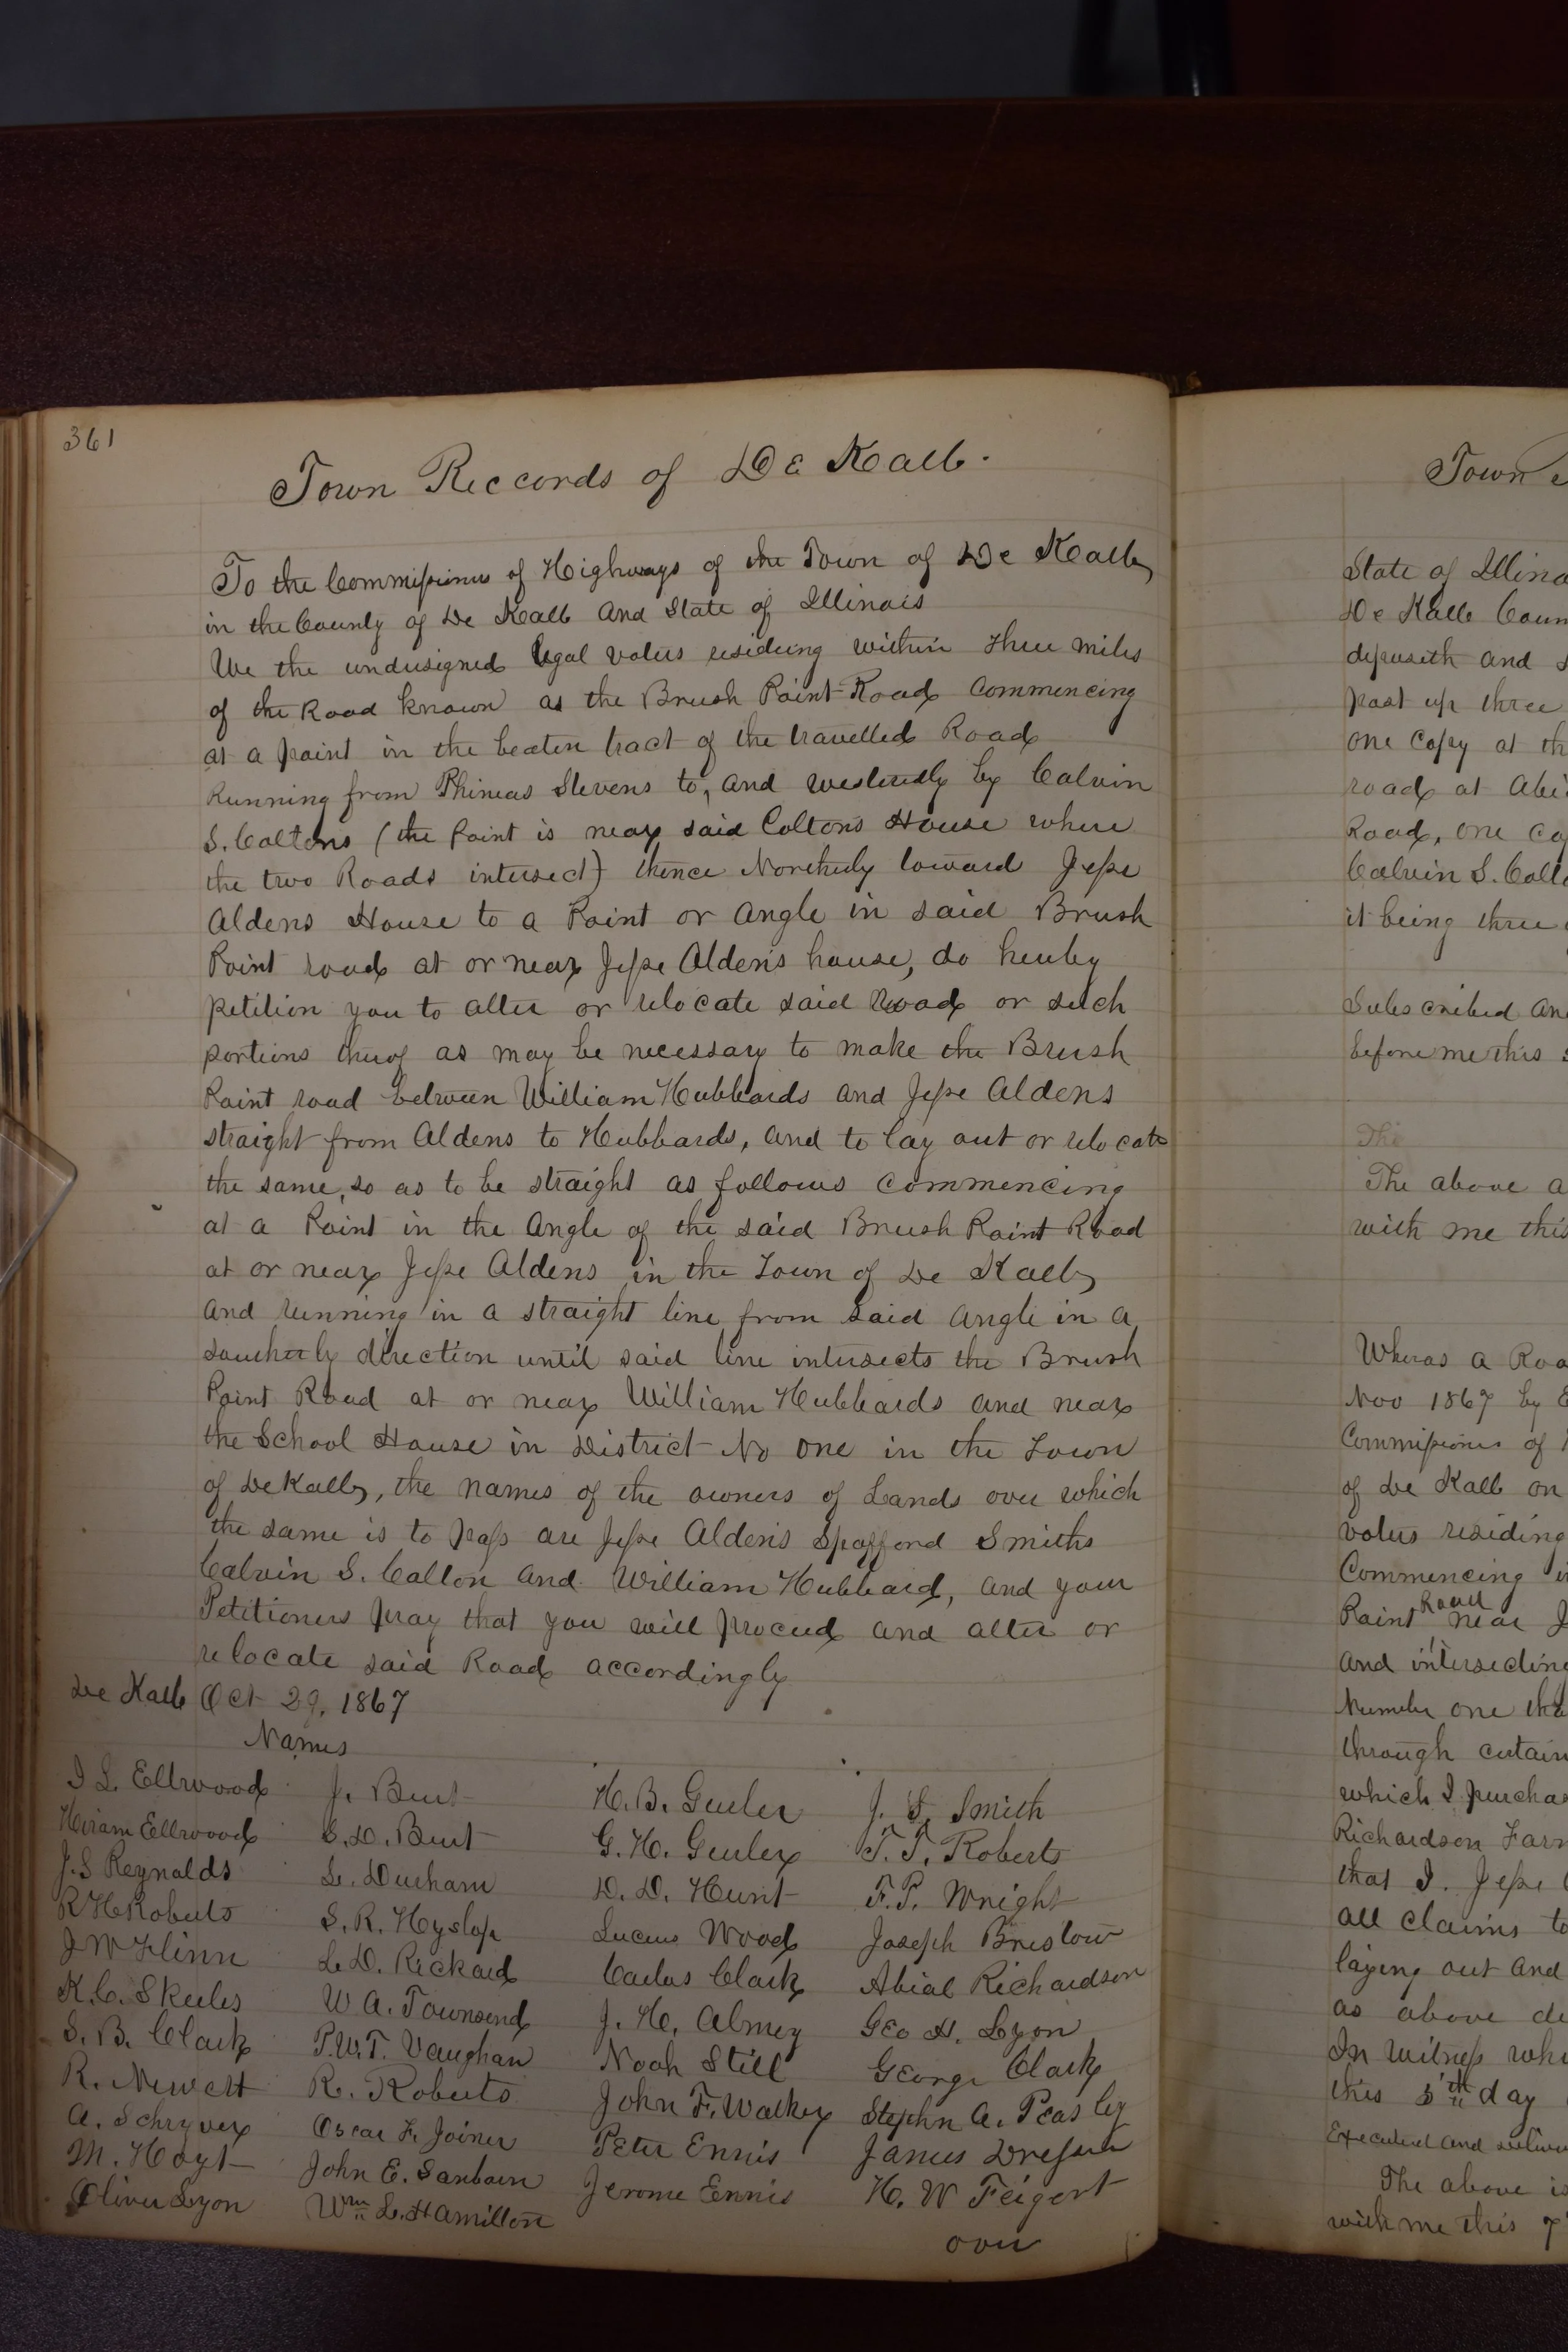 361
Town Reccords of De Kalb.
To the Commissioners of Highways of the Town of De Kalb
in the County of De Kalb and State of Illinois
We the undersigned legal voters residing within three miles
of the Road known as the Brush Point Road Commencing
at a point in the beaten tract of the travelled Road
Running from Phineas Stevens to, and westerdly by Calvin
S. Coltons (the Point is near said Coltons House where
the two Roads intersect) thence Northerly toward Jesse
Aldens House to a Point or angle in said Brush
Point road at or near Jesse Alden's house, do hereby
petition you to alter or relocate said Road or such
portions thereof as may be necessary to make the Brush
Point road between William Hubbards and Jesse Aldens
straight from Aldens to Hubbards, and to lay out or relocate
the same, so as to be straight as follows Commencing
at a Point in the Angle of the said Brush Point Road
at or near Jesse Aldens in the Town of De Kalb
and running in a straight line from said Angle in a
southerly direction until said line intersects the Brush
Point Road at or near William Hubbards and near
the School House in District No one in the Town
of De Kalb, the names of the owners of Lands over which
the same is to pass are Jesse Alden's Spafford Smiths
Calvin S. Colton and William Hubbard, and your
Petitioners pray that you will proceed and alter or
relocate said Road accordingly
De Kalb Oct 29, 1867
Names
I L. Ellwood J. Burt H. B. Gurler J. S. Smith
Hiram Ellwood S. D. Burt G. H. Gurler T. T. Roberts
J. S Reynolds L. Durham D. D. Hunt F. P. Wright
R H Roberts S. R. Hyslop Lucius Wood Joseph Bristow
J W Flinn L. D. Rickard Carlos Clark Abial Richardson
K. C. Skeeles W A. Townsend J. H. Almey Geo H. Lyon
S. B. Clark P. W. T. Vaughan Noah Still George Clark
R. Newett R. Roberts John F. Walker Stephn A. Peasley
A. Schryver Oscar F. Joiner Peter Ennis James
M. Hoyt John E. Sanborn Jerome Ennis H. W Feigert
Oliver Lyon Wm L. Hamilton
over
Town
State of Illino
De Kalb Coun
deposeth and
past up three
one Copy at th
road at Abi
Road, one co
Calvin S. Colt
it being three
Subscribed an
before me this
The
The above a
with me this
Wheras a Roa
Nov 1867 by E
Commissioners of
of De Kalb on
voters residing
Commencing
Point Road near J
and intersecting
Number one the
through certain
which I purchas
Richardson Farm
that I. Jesse
all claims to
laying out and
as above de
In witness whe
this 5th day
Executed and deliver
The above is
with me this 7